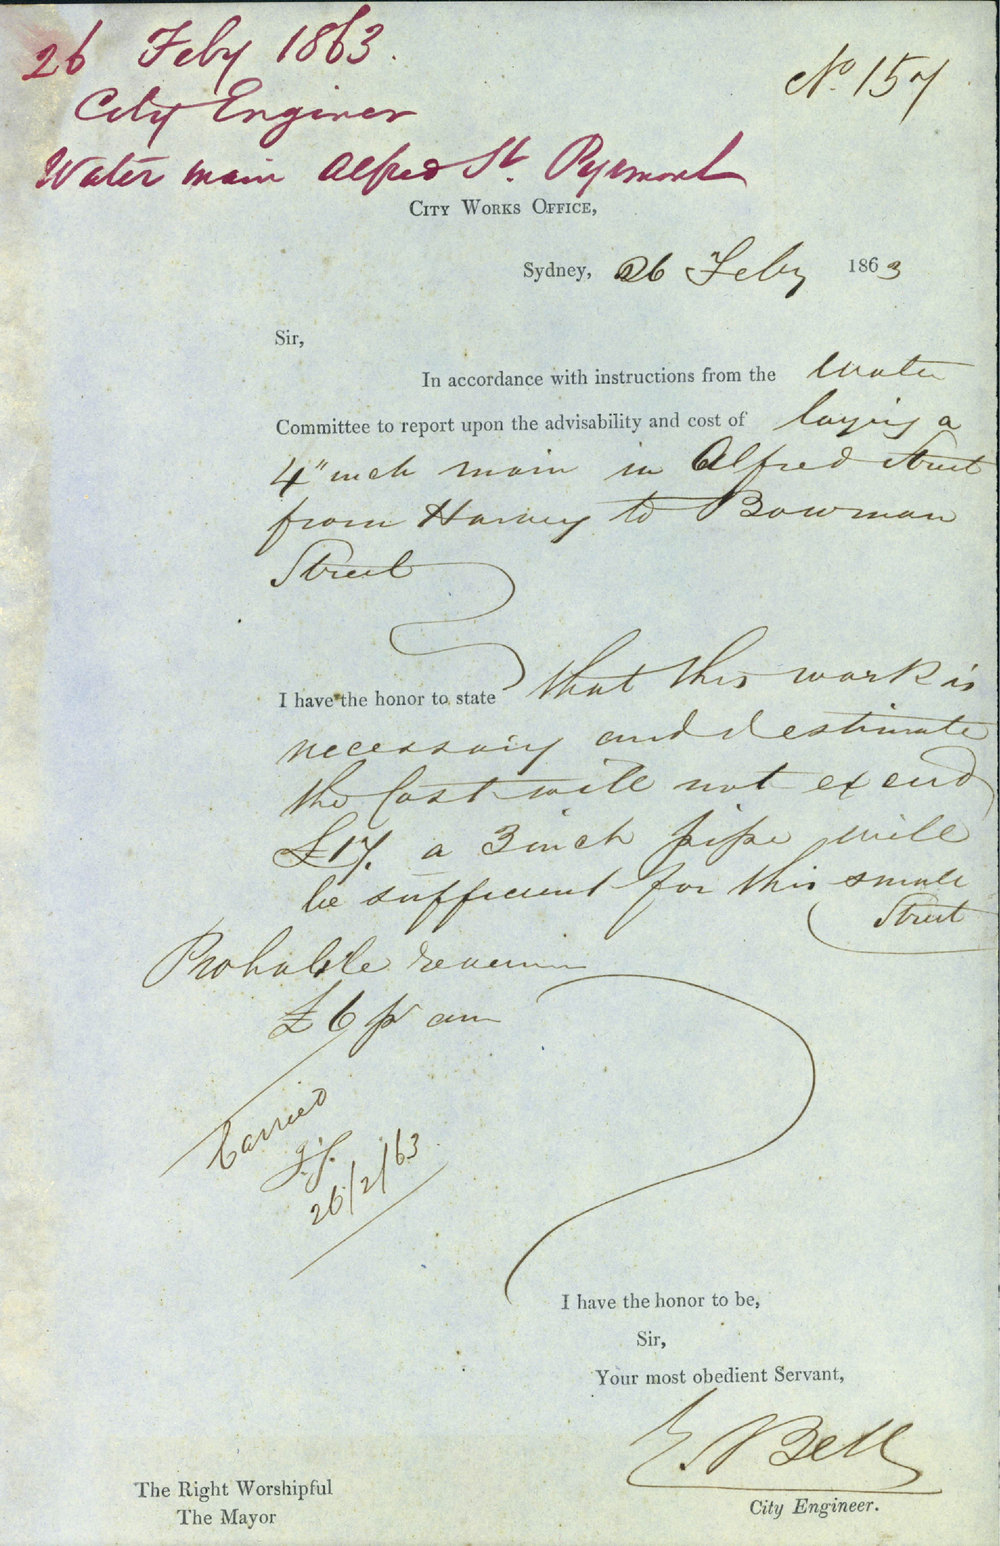 26 Feby 1863.
No. 157
City Enginer
Water main Alfred St. Pyrmont
CITY WORKS OFFICE,
Sydney, 26 Feby 1863
Sir,
In accordance with instructions from the Water
Committee to report upon the advisability and cost of laying a
4" inch main in Alfred Street
from Harvey to Bowman
Street
I have the honor to state that this work is
necessary and I estimate
the Cost will not exceed
£17. a 3 inch pipe will
be sufficient for this small
Street
Probable revenue
£6 pr ann
Carried
J.S.
26/2/63
I have the honor to be,
Sir,
Your most obedient Servant,
E Bell
City Engineer.
The Right Worshipful
The Mayor